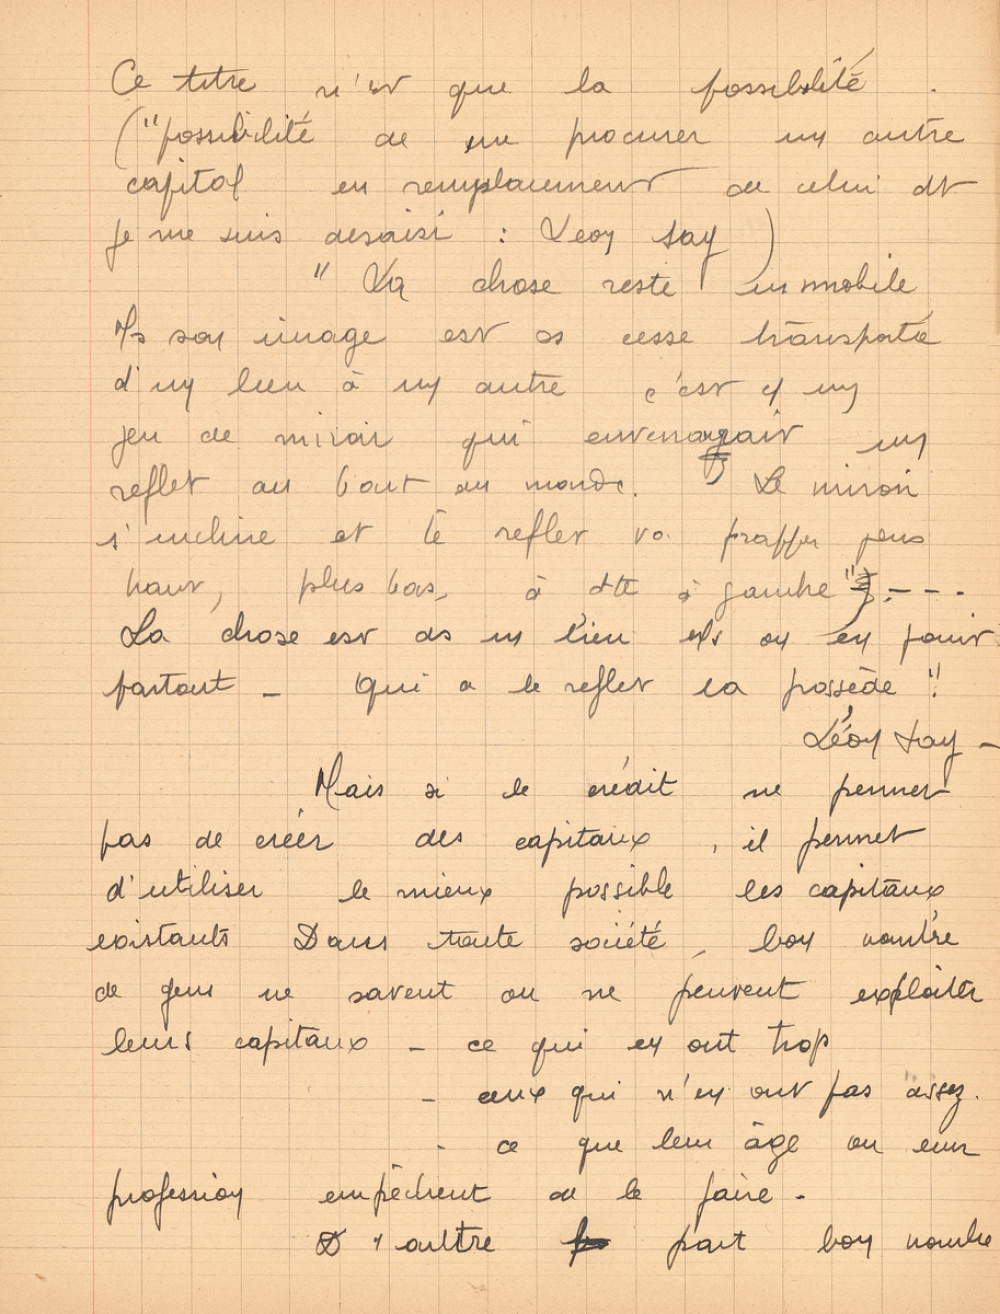 Ce titre n'est que la possibilité .
("possibilité de me procurer un autre
capital en remplacement de celui dt
je me suis desaisi : Léon Say )
" La chose reste immobile
Ms son image est ss cesse transportée
d'un lieu à un autre c'est cy un
jeu de miroir qui enverrait un
reflet au bout du monde. Le miroir
s'incline et le reflet va frapper plus
haut, plus bas, à dte à gauche") . - - -
La chose est ds un lieu et on en jouit
partout - Qui a le reflet la possède "
Léon Say -
Mais si le crédit ne permet
pas de créer des capitaux , il permet
d'utiliser le mieux possible les capitaux
existants Dans toute société , bon nombre
de gens ne savent ou ne peuvent exploiter
leurs capitaux - ce qui en ont trop
- ceux qui n'en ont pas assez.
- ce que leur âge ou leur
profession empêchent de le faire -
D'aultre part bon nombre